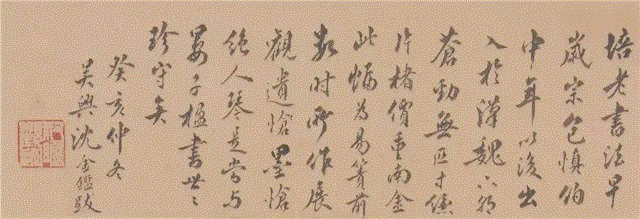 培老書法早
歲宗包慎伯
中年以後出
入於漢魏六朝
蒼勁無匹寸縑
片楮價重南金
此幅為易簀前
數時所作展
觀遺愴墨愴
絕人琴是當與
晏子楹書世世
珍守矣
癸亥仲冬
吳興沈金鑑跋